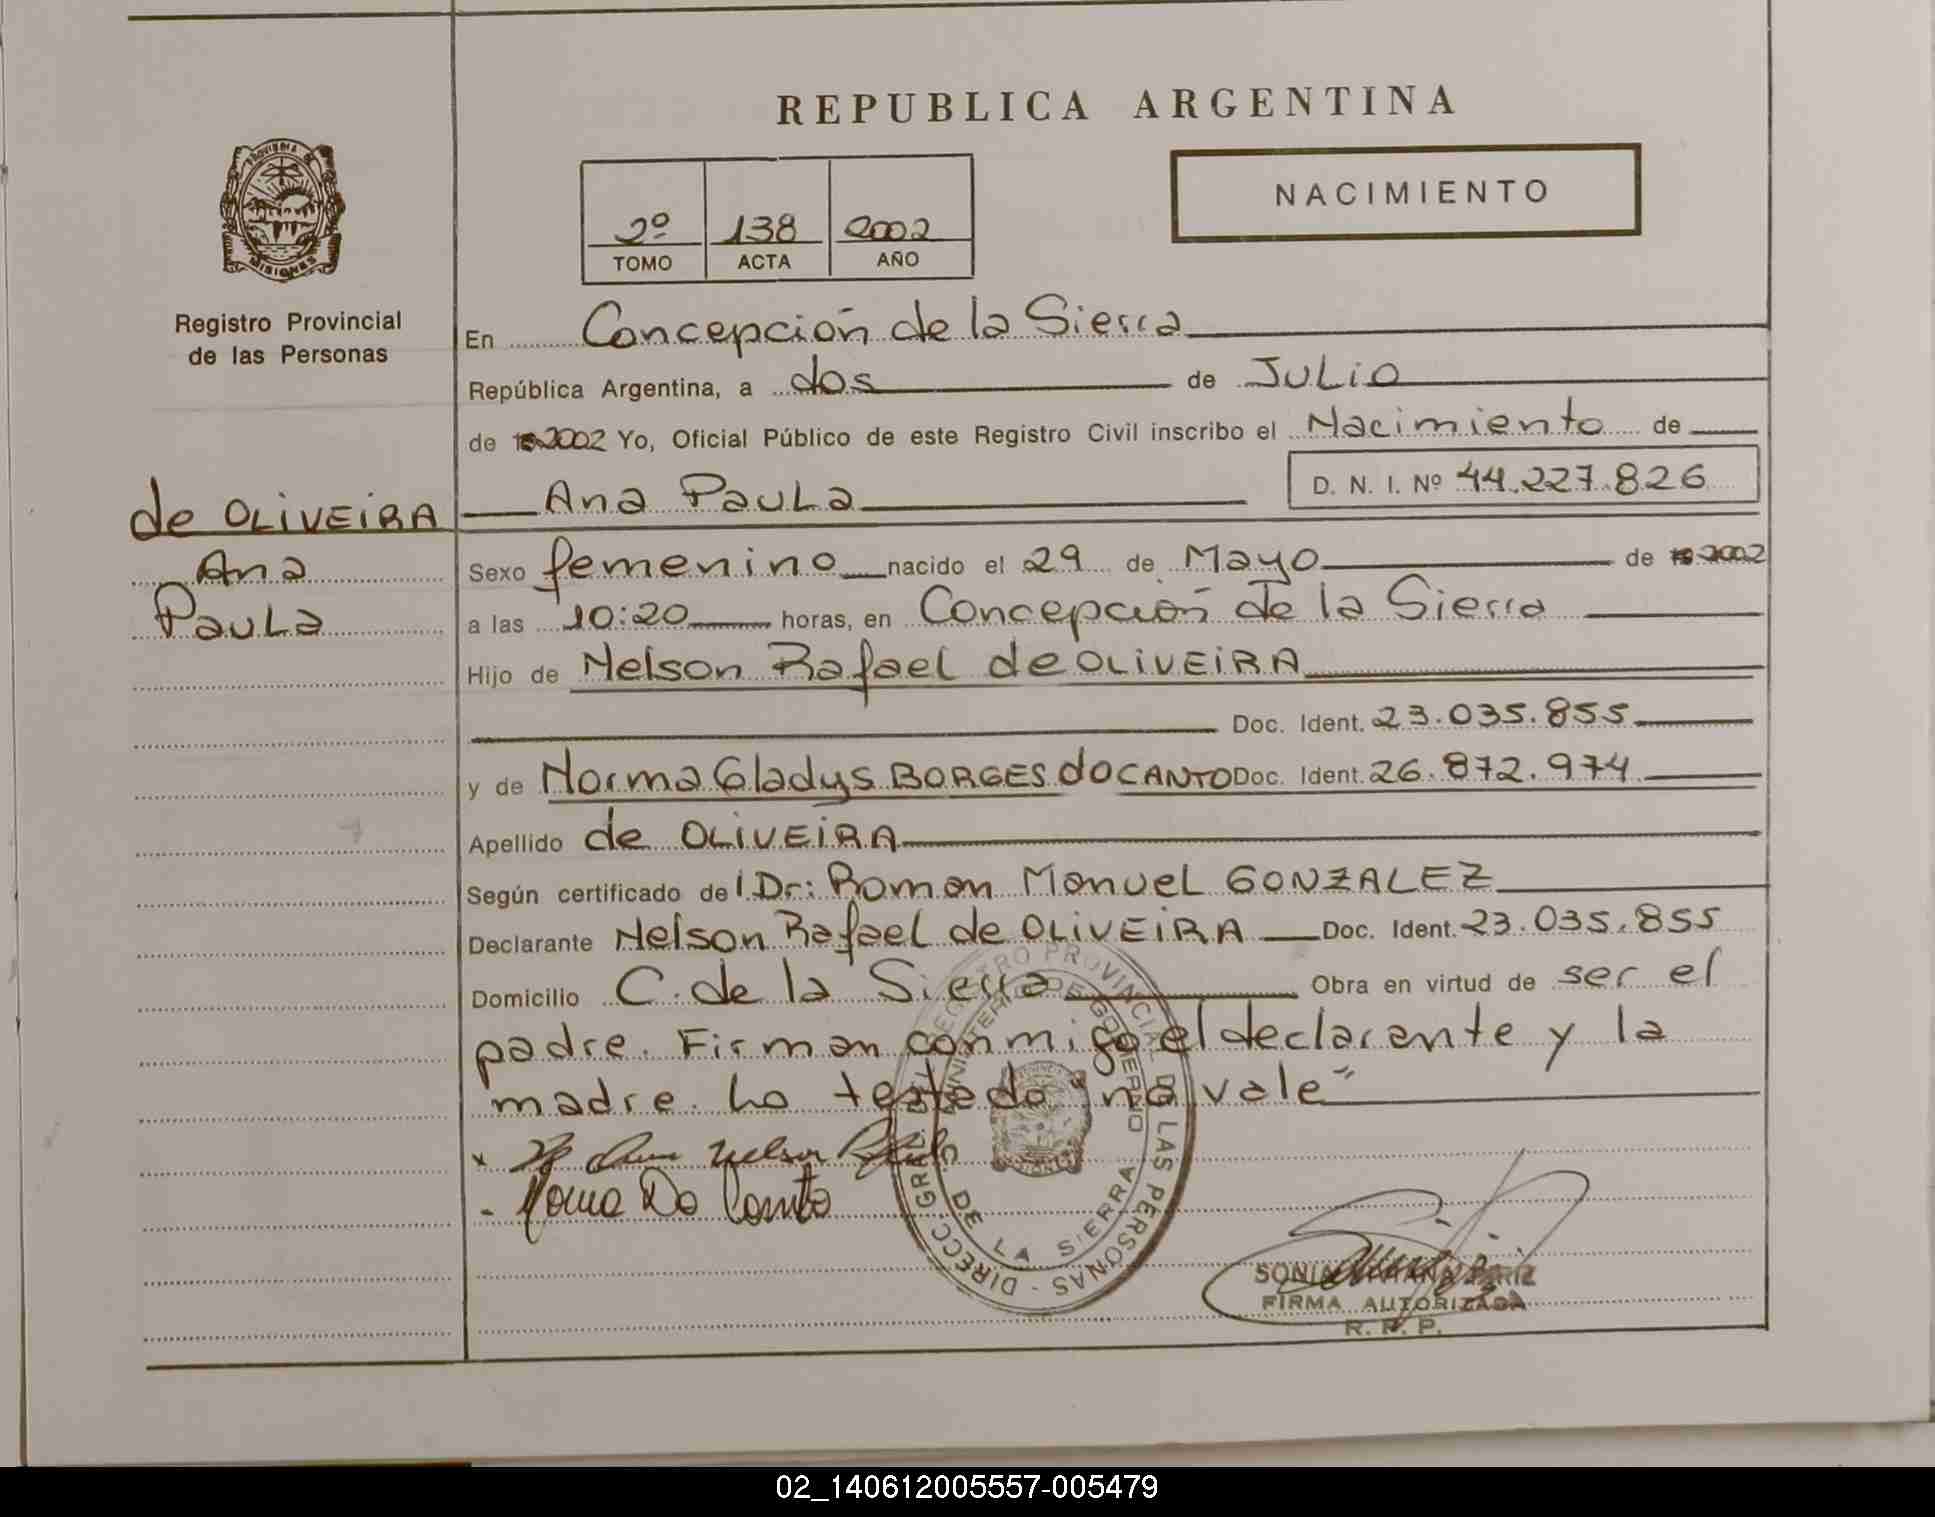 REPUBLICA ARGENTINA
NACIMIENTO
2º 138 2002
TOMO ACTA AÑO
PROVINCIA DE MISIONES
Registro Provincial
de las Personas
de OLIVEIRA
Ana
Paula
En Concepción de la Sierra
República Argentina, a dos de Julio
de 2002 Yo, Oficial Público de este Registro Civil inscribo el Nacimiento de
Ana Paula D. N. I. Nº 44.227.826
Sexo femenino nacido el 29 de Mayo de 2002
a las 10:20 horas, en Concepción de la Sierra
Hijo de Nelson Rafael de OLIVEIRA
Doc. Ident. 23.035.855
y de Norma Gladys BORGES do CANTO Doc. Ident. 26.872.974
Apellido de OLIVEIRA
Según certificado del Dr: Roman Manuel GONZALEZ
Declarante Nelson Rafael de OLIVEIRA Doc. Ident. 23.035.855
Domicilio C. de la Sierra Obra en virtud de ser el
padre. Firman conmigo el declarante y la
madre. Lo testado "no vale"
Nelson
Norma Do Canto
DIRECC. GRAL. DEL REGISTRO PROVINCIAL DE LAS PERSONAS
MINISTERIO DE GOBIERNO
DE LA SIERRA
SONIA
FIRMA AUTORIZADA
R. R. P.
02_140612005557-005479